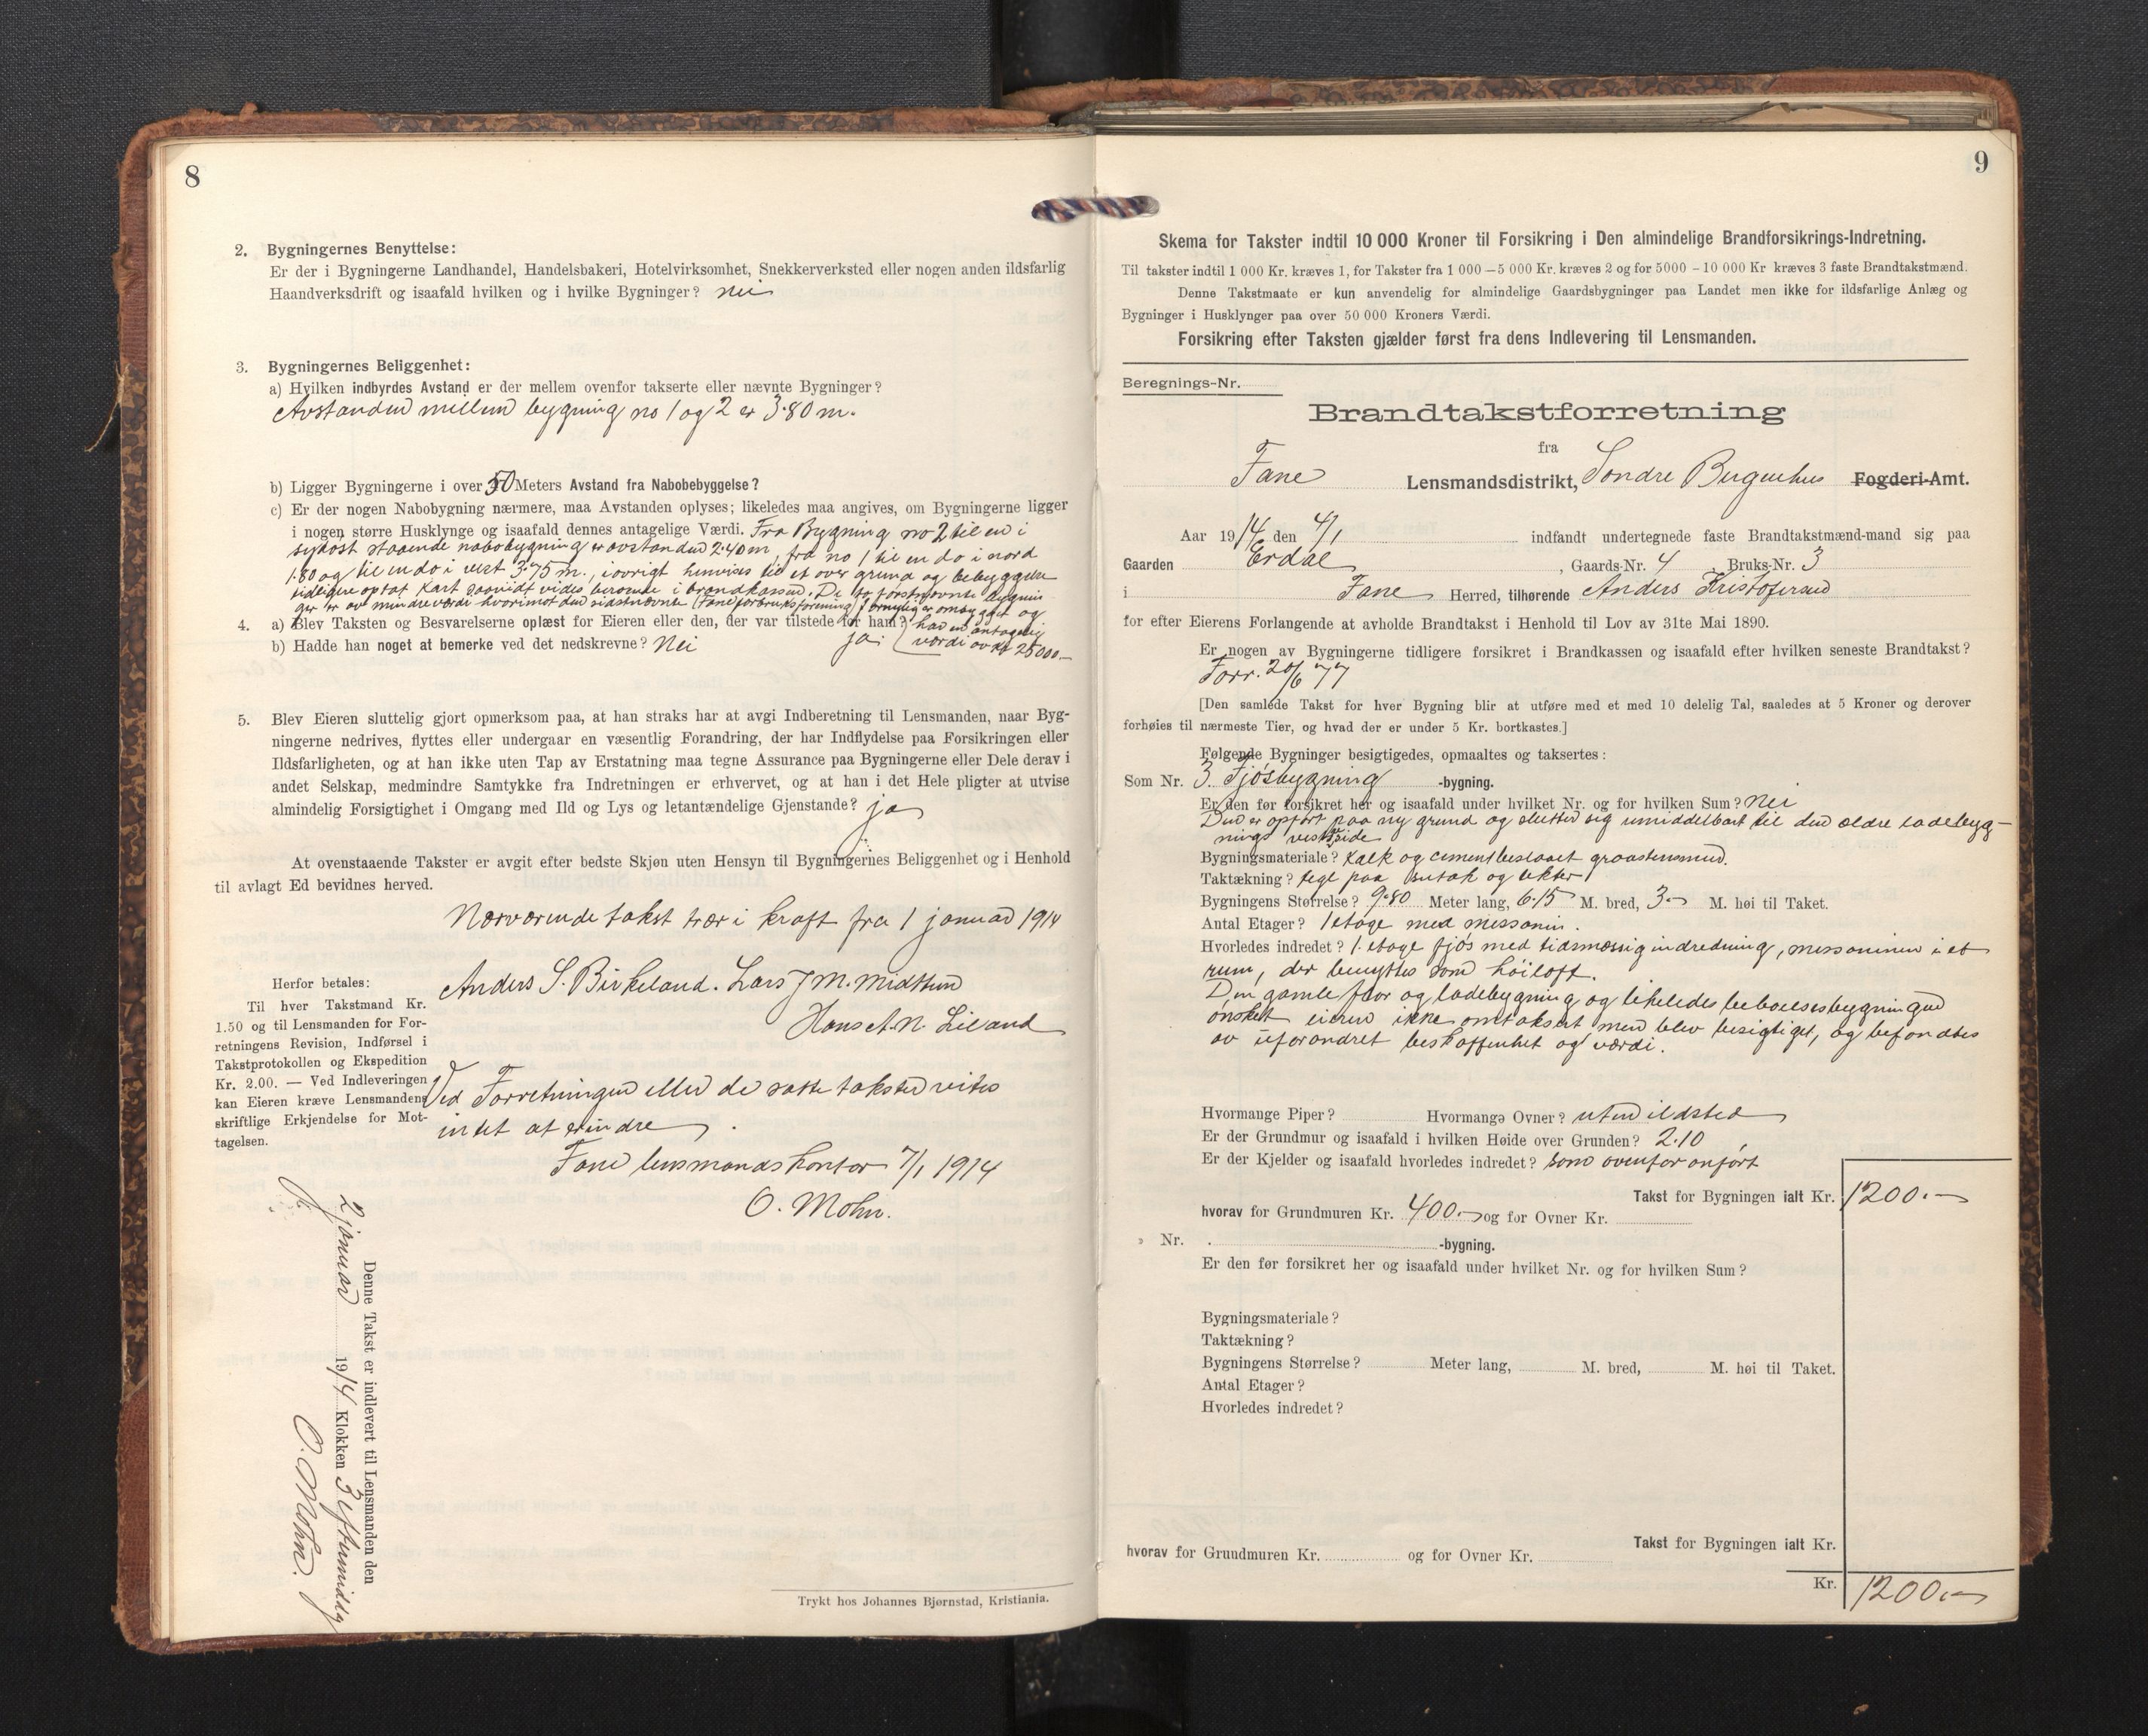 8
2. Bygningernes Benyttelse:
Er der i Bygningerne Landhandel, Handelsbakeri, Hotelvirksomhet, Snekkerverksted eller nogen anden ildsfarlig
Haandverksdrift og isaafald hvilken og i hvilke Bygninger? Nei
3. Bygningernes Beliggenhet:
a) Hvilken indbyrdes Avstand er der mellem ovenfor takserte eller nævnte Bygninger?
Avstanden mellem bygning no 1 og 2 er 3.80 m.
b) Ligger Bygningerne i over 50 Meters Avstand fra Nabobebyggelse?
c) Er der nogen Nabobygning nærmere, maa Avstanden oplyses; likeledes maa angives, om Bygningerne ligger
i nogen større Husklynge og isaafald dennes antagelige Værdi. Fra Bygning no 2 til en i
sydost staaende nabobygning er avstanden 2.40 m, fra no 1 til en do i nord
1.80 og til en do i vest 3.75 m., iøvrigt henvises til et over grund og bebyggelse
tidligere optat Kart saavidt vides beroende i brandkassen. De to førstnævnte bygnin
ger er av mindre værdi hvorimot den sidstnævnte (Fane forbruksforening) fornylig er ombygget og
4. a) Blev Taksten og Besvarelserne oplæst for Eieren eller den, der var tilstede for ham? ja
har en antagelig
værdi av Kr 25000.-
b) Hadde han noget at bemerke ved det nedskrevne? Nei
5. Blev Eieren sluttelig gjort opmerksom paa, at han straks har at avgi Indberetning til Lensmanden, naar Byg-
ningerne nedrives, flyttes eller undergaar en væsentlig Forandring, der har Indflydelse paa Forsikringen eller
Ildsfarligheten, og at han ikke uten Tap av Erstatning maa tegne Assurance paa Bygningerne eller Dele derav i
andet Selskap, medmindre Samtykke fra Indretningen er erhvervet, og at han i det Hele pligter at utvise
almindelig Forsigtighet i Omgang med Ild og Lys og letantændelige Gjenstande? ja
At ovenstaaende Takster er avgit efter bedste Skjøn uten Hensyn til Bygningernes Beliggenhet og i Henhold
til avlagt Ed bevidnes herved.
Nærværende takst trær i kraft fra 1 januar 1914
Anders S. Birkeland. Lars J M. Midttun
Hans A. N. Liland
Herfor betales:
Til hver Takstmand Kr.
1.50 og til Lensmanden for For-
retningens Revision, Indførsel i
Takstprotokollen og Ekspedition
Kr. 2.00. — Ved Indleveringen
kan Eieren kræve Lensmandens
skriftlige Erkjendelse for Mot-
tagelsen.
Ved Forretningen eller de satte takster vites
intet at erindre.
Fane lensmandskontor 7/1 1914
O. Mohn.
Denne Takst er indlevert til Lensmanden den
2 januar 1914 Klokken 3 eftermiddg
O. Mohn.
Trykt hos Johannes Bjørnstad, Kristiania.
9
Skema for Takster indtil 10 000 Kroner til Forsikring i Den almindelige Brandforsikrings-Indretning.
Til takster indtil 1 000 Kr. kræves 1, for Takster fra 1 000 — 5 000 Kr. kræves 2 og for 5000 – 10 000 Kr kræves 3 faste Brandtakstmænd.
Denne Takstmaate er kun anvendelig for almindelige Gaardsbygninger paa Landet men ikke for ildsfarlige Anlæg og
Bygninger i Husklynger paa over 50 000 Kroners Værdi.
Forsikring efter Taksten gjælder først fra dens Indlevering til Lensmanden.
Beregnings-Nr.
Brandtakstforretning
fra
Fane Lensmandsdistrikt, Søndre Bergenhus Fogderi-Amt.
Aar 1914 den 4/1 indfandt undertegnede faste Brandtakstmænd-mand sig paa
Gaarden Erdal, Gaards-Nr. 4 Bruks-Nr. 3
i Fane Herred, tilhørende Anders Kristofersen
for efter Eierens Forlangende at avholde Brandtakst i Henhold til Lov av 31te Mai 1890.
Er nogen av Bygningerne tidligere forsikret i Brandkassen og isaafald efter hvilken seneste Brandtakst?
Forr. 20/6 77
[Den samlede Takst for hver Bygning blir at utføre med et med 10 delelig Tal, saaledes at 5 Kroner og derover
forhøies til nærmeste Tier, og hvad der er under 5 Kr. bortkastes.]
Følgende Bygninger besigtigedes, opmaaltes og taksertes:
Som Nr. 3. Fjøsbygning -bygning.
Er den før forsikret her og isaafald under hvilket Nr. og for hvilken Sum? Nei
Den er opført paa ny grund og slutter sig umiddelbart til den ældre ladebyg-
nings vestside
Bygningsmateriale? Kalk og cementbeslaaet graastensmur.
Taktækning? tegl paa sutak og lekter
Bygningens Størrelse? 9.80 Meter lang, 6.15 M. bred, 3.- M. høi til Taket.
Antal Etager? 1 etage med messanin.
Hvorledes indredet? 1. etage fjøs med tidsmæssig indredning, messaninen i et
rum, der benyttes som høiloft.
Den gamle flor og ladebygning og likeledes beboelsesbygningen
ønsket eieren ikke omtaksert men blev besigtiget, og befandtes
av uforandret beskaffenhet og værdi.
Hvormange Piper? Hvormange Ovner? uten ildsted
Er der Grundmur og isaafald i hvilken Høide over Grunden? 2.10
Er der Kjelder og isaafald hvorledes indredet? som ovenfor anført
Takst for Bygningen ialt Kr. 1200.-
hvorav for Grundmuren Kr. 400.- og for Ovner Kr.
» Nr. -bygning.
Er den før forsikret her og isaafald under hvilket Nr. og for hvilken Sum?
Bygningsmateriale?
Taktækning?
Bygningens Størrelse? Meter lang, M. bred, M. høi til Taket.
Antal Etager?
Hvorledes indredet?
Takst for Bygningen ialt Kr.
hvorav for Grundmuren Kr. og for Ovner Kr.
Kr. 1200.-